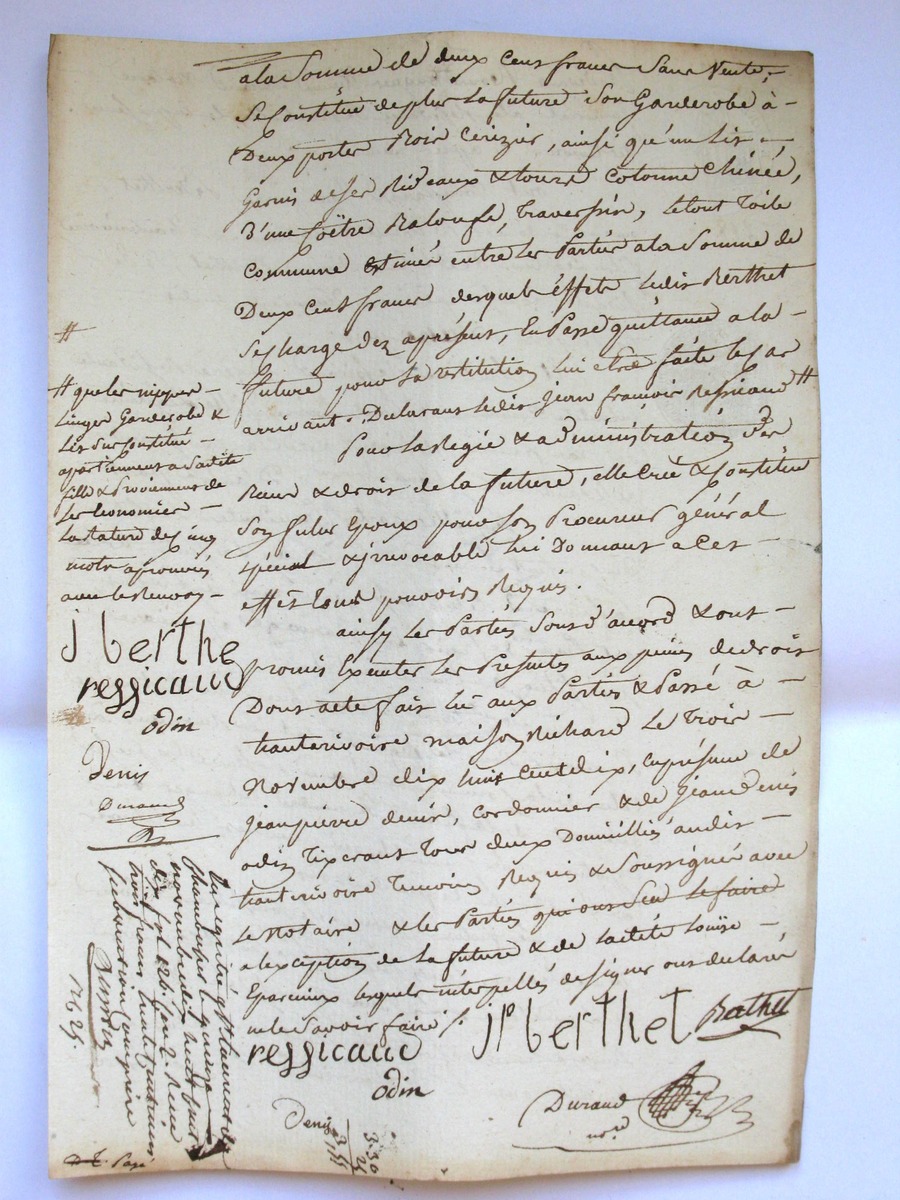 a la Somme de deux Cent francs Sans Vente,
Se Constitue de plus La future Son Garderobe à
Deux portes Bois Cerizier, ainsi qu'un Lit
Garnis de Ses Rideaux & tours Cotonne Chinée,
D'une Coëtre Balouffe, Traversin, Le tout Toile
Commune Estimés entre les Parties a la Somme de
Deux Cent francs desquels éffets Ledit Berthet
Se charge dez aprésent, En Passe quittance a la
future pour la restitution lui etre faite le cas
arrivant. Déclarant Ledit Jean françois Ressicaud #
Pour la Regie & administration des
Biens & droits de la future, elle Crée & Constitue
Son futur Epoux pour Son Procureur général
spécial & irrevocable lui Donnant a Cet
effet tous pouvoirs Requis.
ainsy Les Parties Sont d'accord & ont
promis Exécuter Les Présentes aux peines de droit
Dont acte fait Lû aux Parties & Passé à
hauterivoire maison Richard Le Trois
Novembre dix huit Cent dix, en présence de
Jean pierre denis, Cordonnier & de Jean Denis
odin Tixerant Tous deux Domiciliés audit
hauterivoire Temoins Requis & Soussignés avec
Le Notaire & les Parties qui ont Seu le faire
a lexception de La future & de Ladite Louise
Eparcieux lesquels interpellés de signer ont déclaré
ne le Savoir faire /.
ressicaud
jp berthet
Bathet
odin
Denis
Durand
no.re
3-30
#
# que les nippes
Linges Garderobe &
Lit Sus Constitué
apartiennent a Sadite
fille & Proviennent de
Ses Economies
La rature de cinq
mots aprouvés
avec le Renvoy
j berthe
ressicaud
odin
Denis
Durand
Enregistré a St Laurent de
Chamousset le quinze
novembre dix huit cent
dix
trois francs trente centimes
subvention comprise